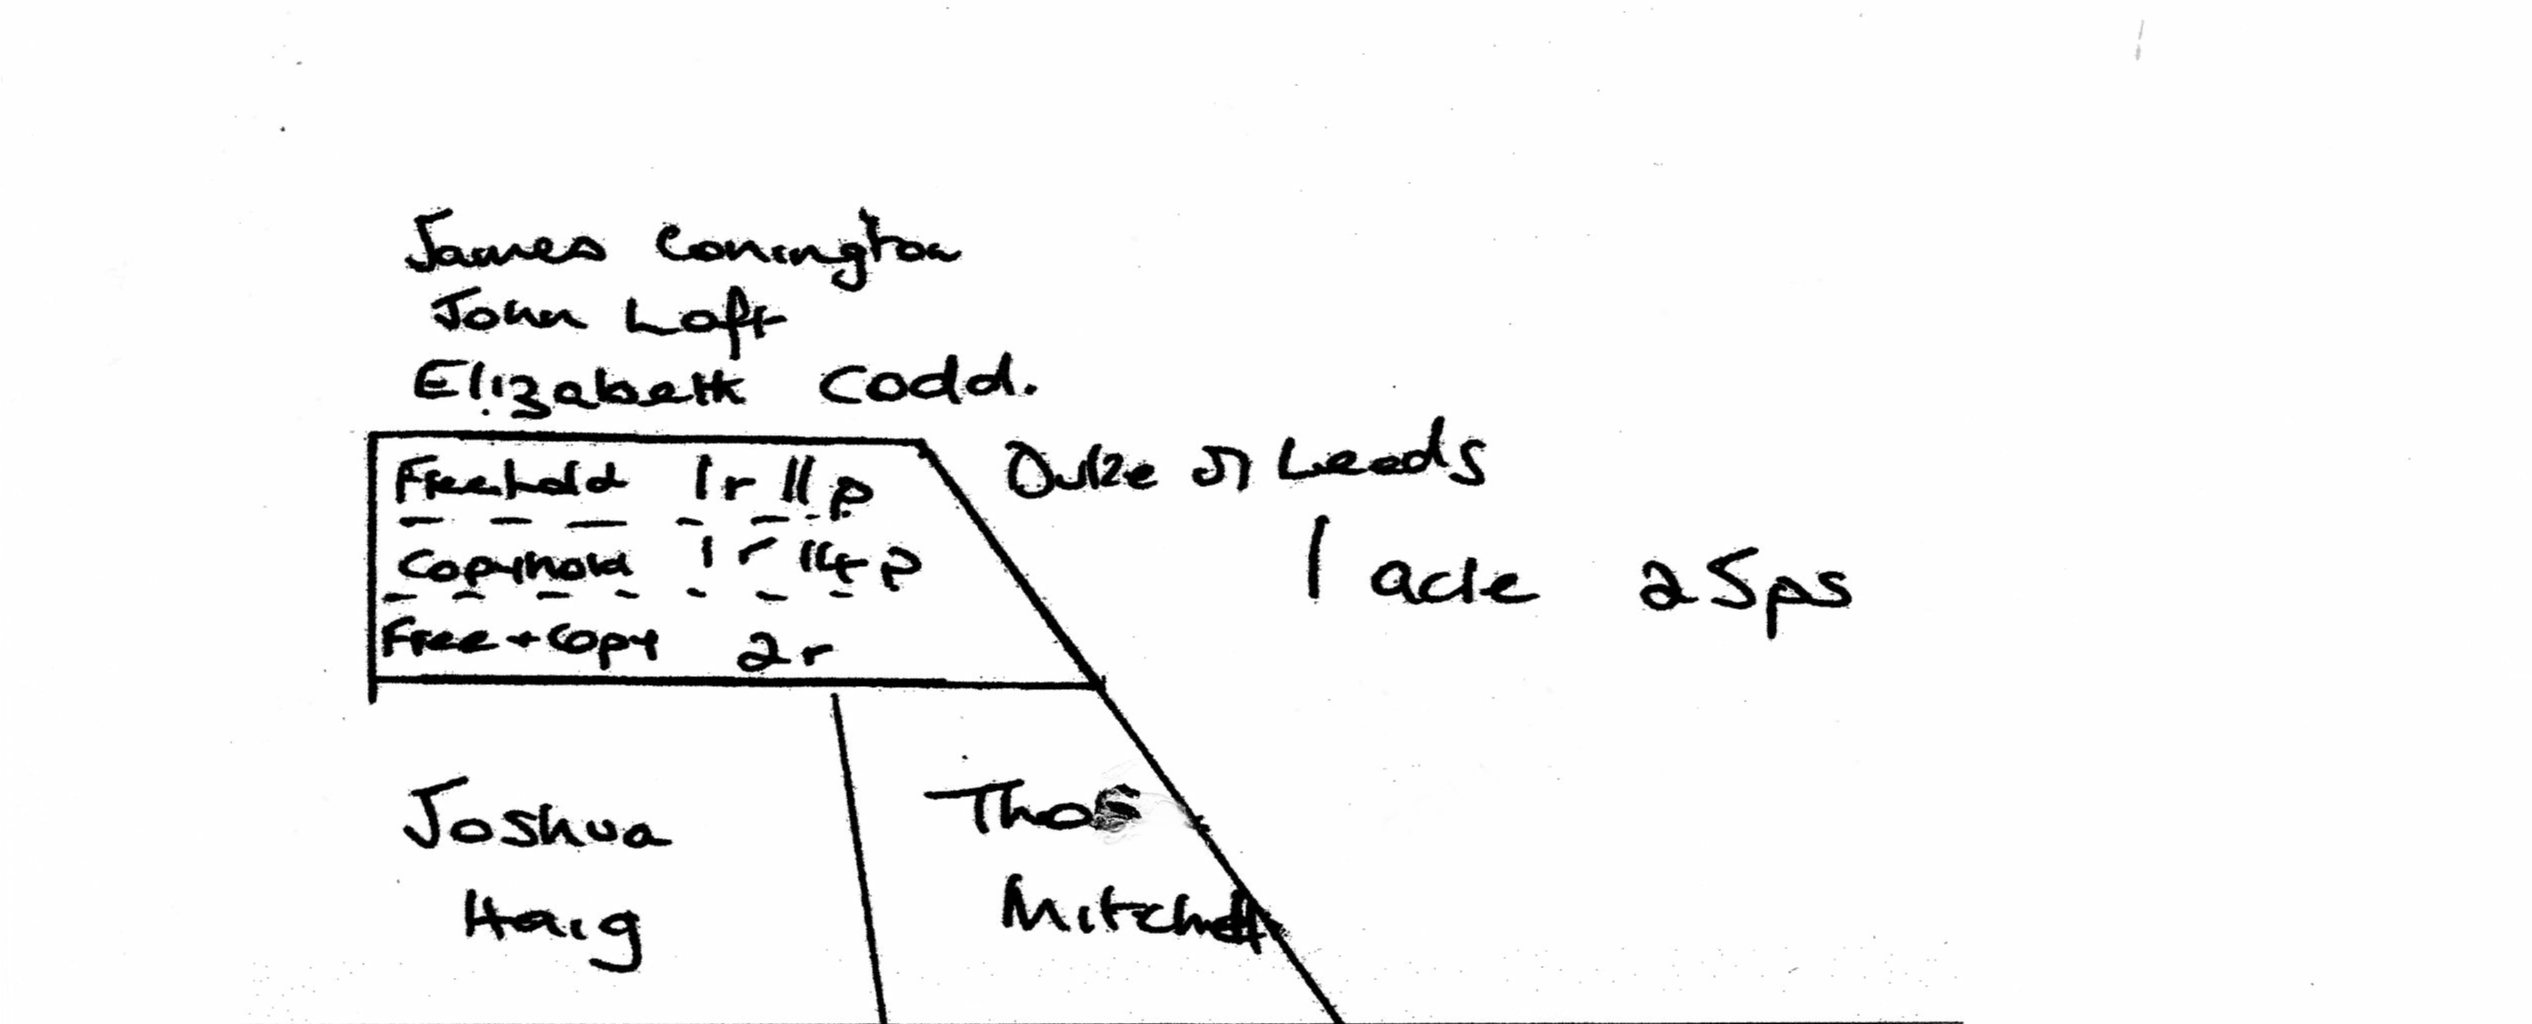 James Conington
John Loft
Elizabeth Codd.
Duke of Leeds
Freehold 1r 11p
Copyhold 1r 14p
1 acre 25ps
Free + Copy 2r
Joshua
Haig
Thos
Mitchell